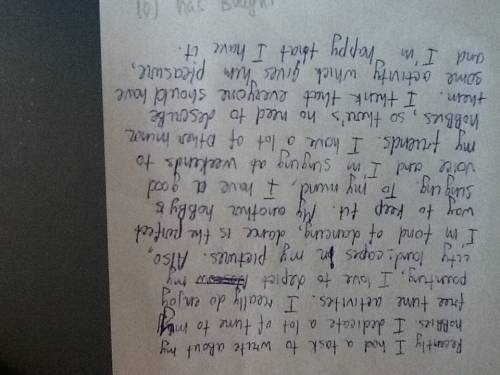 Recently I had a task to write about my
hobbies. I dedicate a lot of time to my
free time activities. I really do enjoy
painting, I love to depict my
city landscapes in my pictures. Also,
I'm fond of dancing, dance is the perfect
way to keep fit. My another hobby is
singing. To my mind, I have a good
voice and I'm singing at weekends to
my friends. I have a lot of other minor
hobbies, so there's no need to describe
them. I think that everyone should have
some activity which gives him pleasure,
and I'm happy that I have it.
10) has